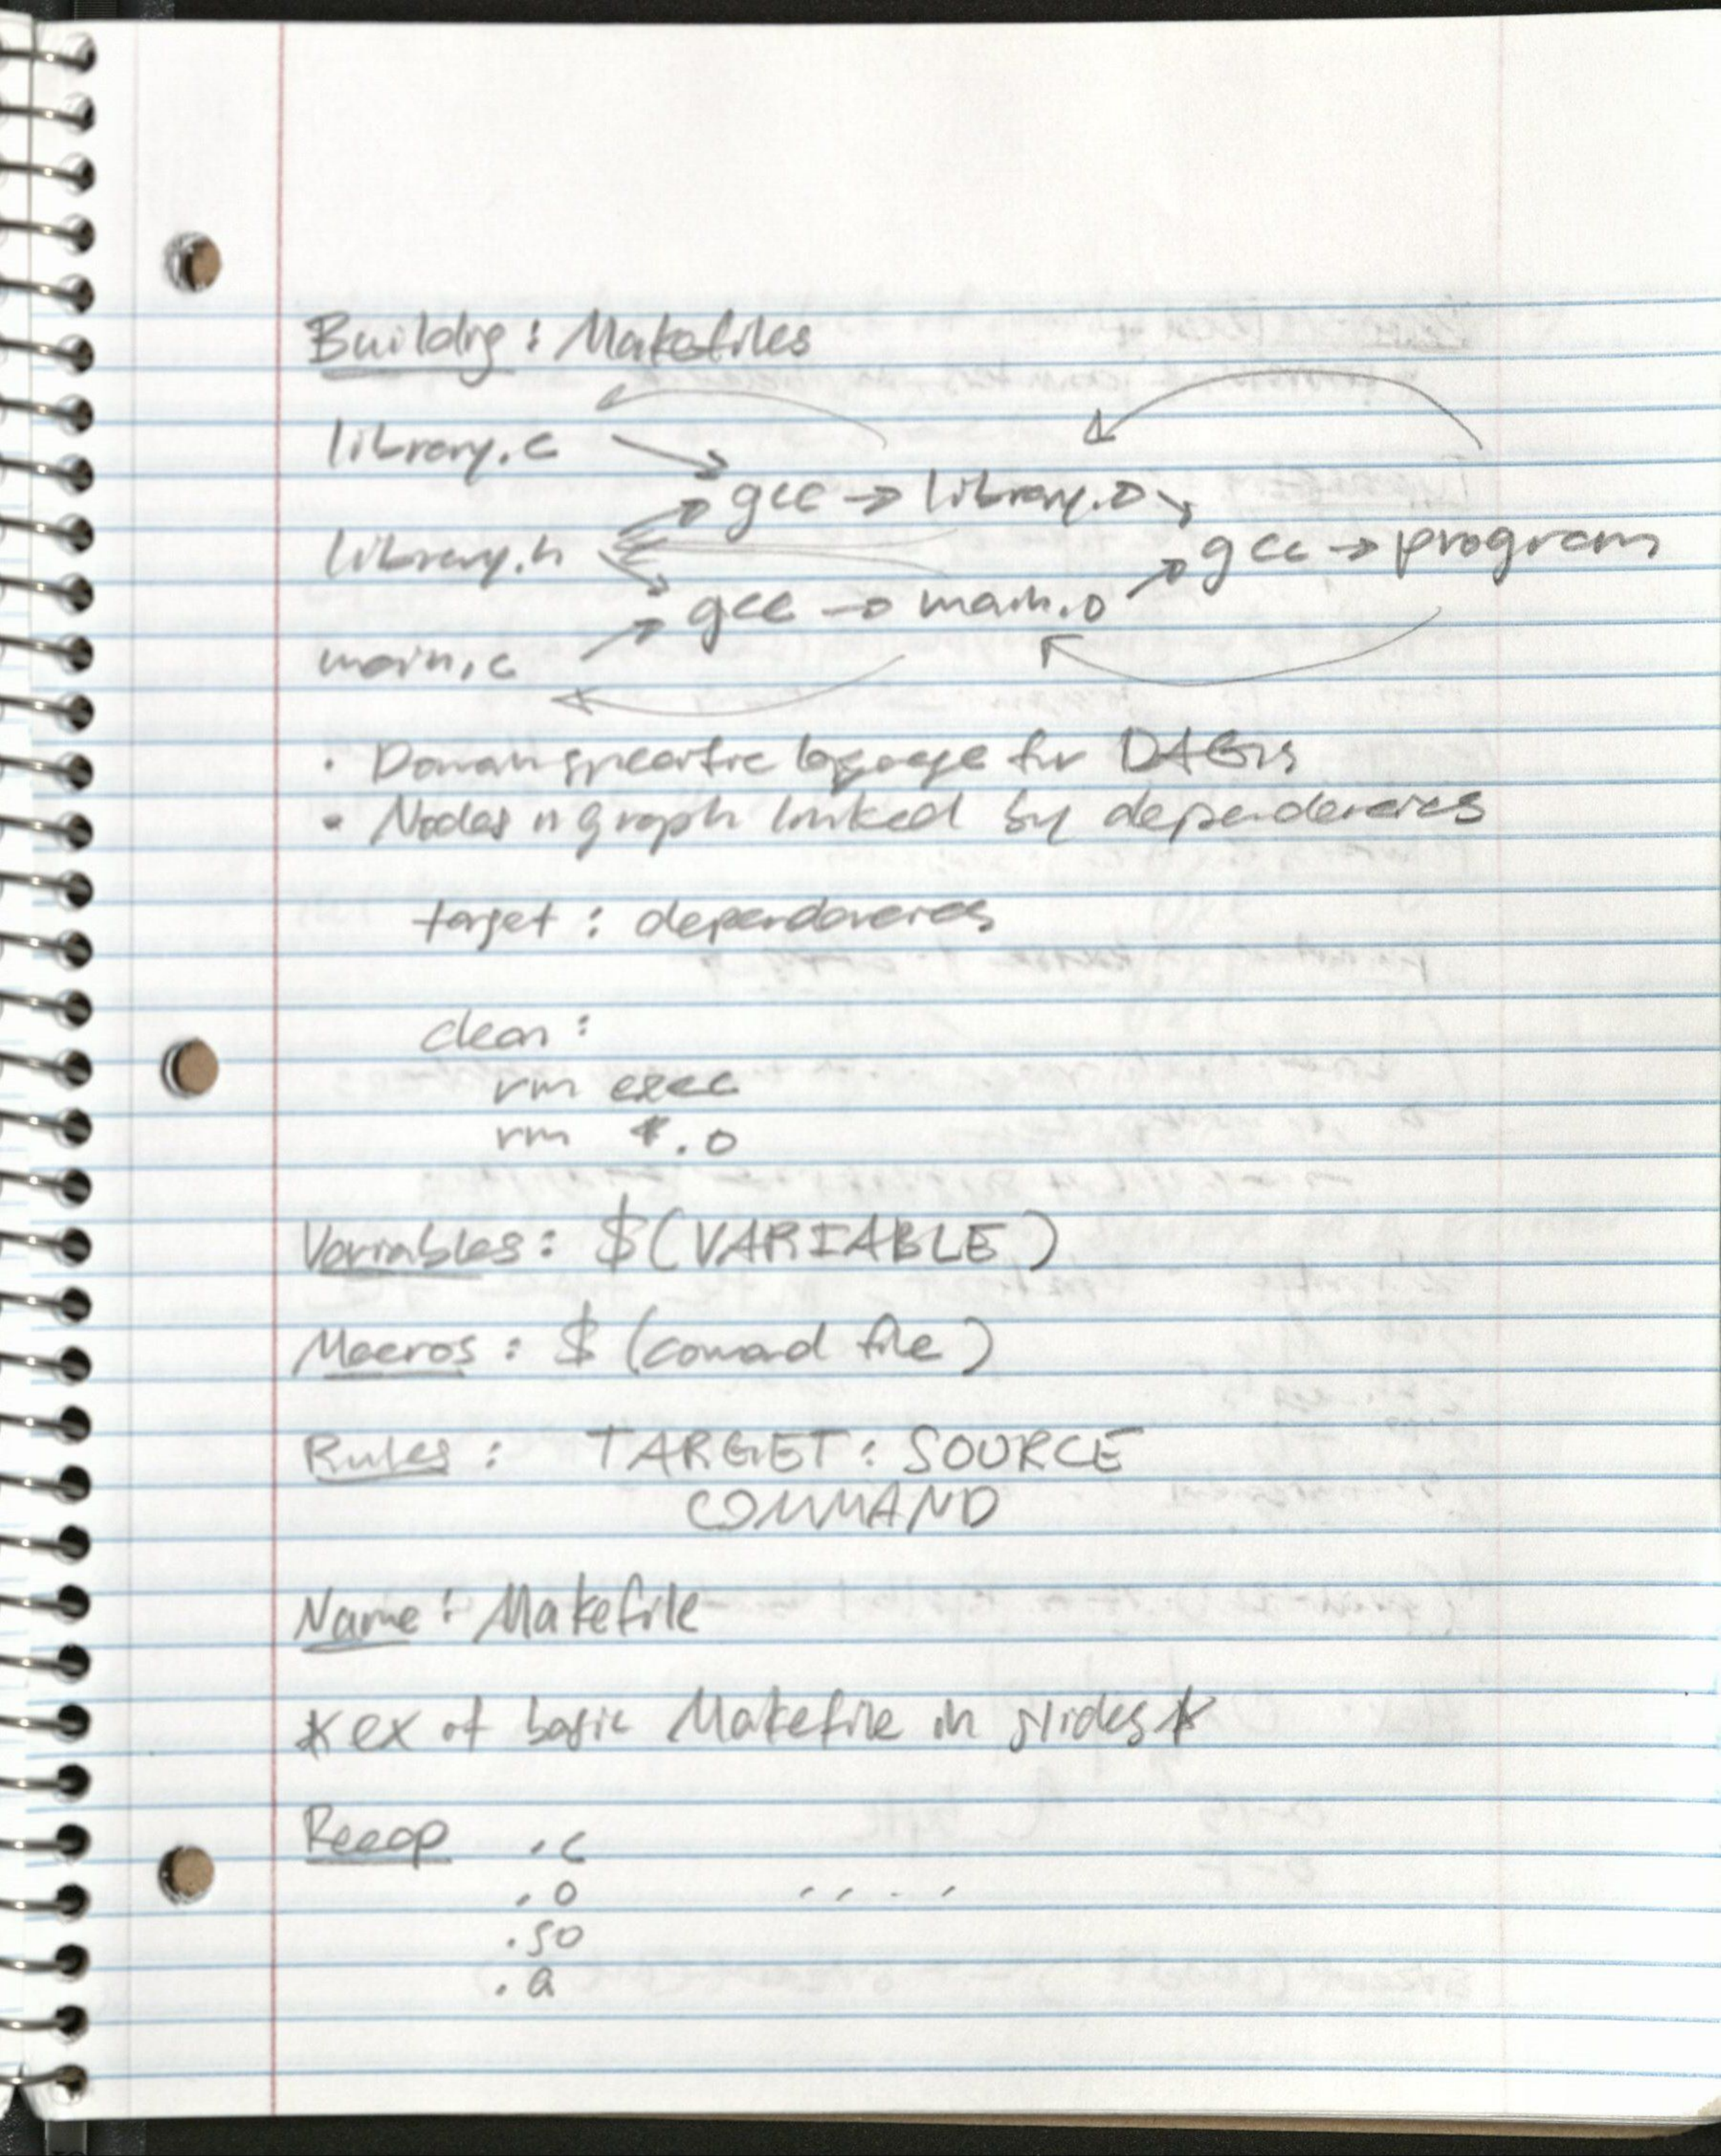 Building: Makefiles
library.c
gcc → library.o
library.h
gcc → program
gcc → main.o
main.c
• Domain specific language for DAGs
• Nodes in graph linked by dependencies
target: dependencies
clean:
rm exec
rm *.o
Variables: $(VARIABLE)
Macros: $(command file)
Rules: TARGET: SOURCE
COMMAND
Name: Makefile
*ex of basic Makefile in slides*
Recap .c
.o
.so
.a